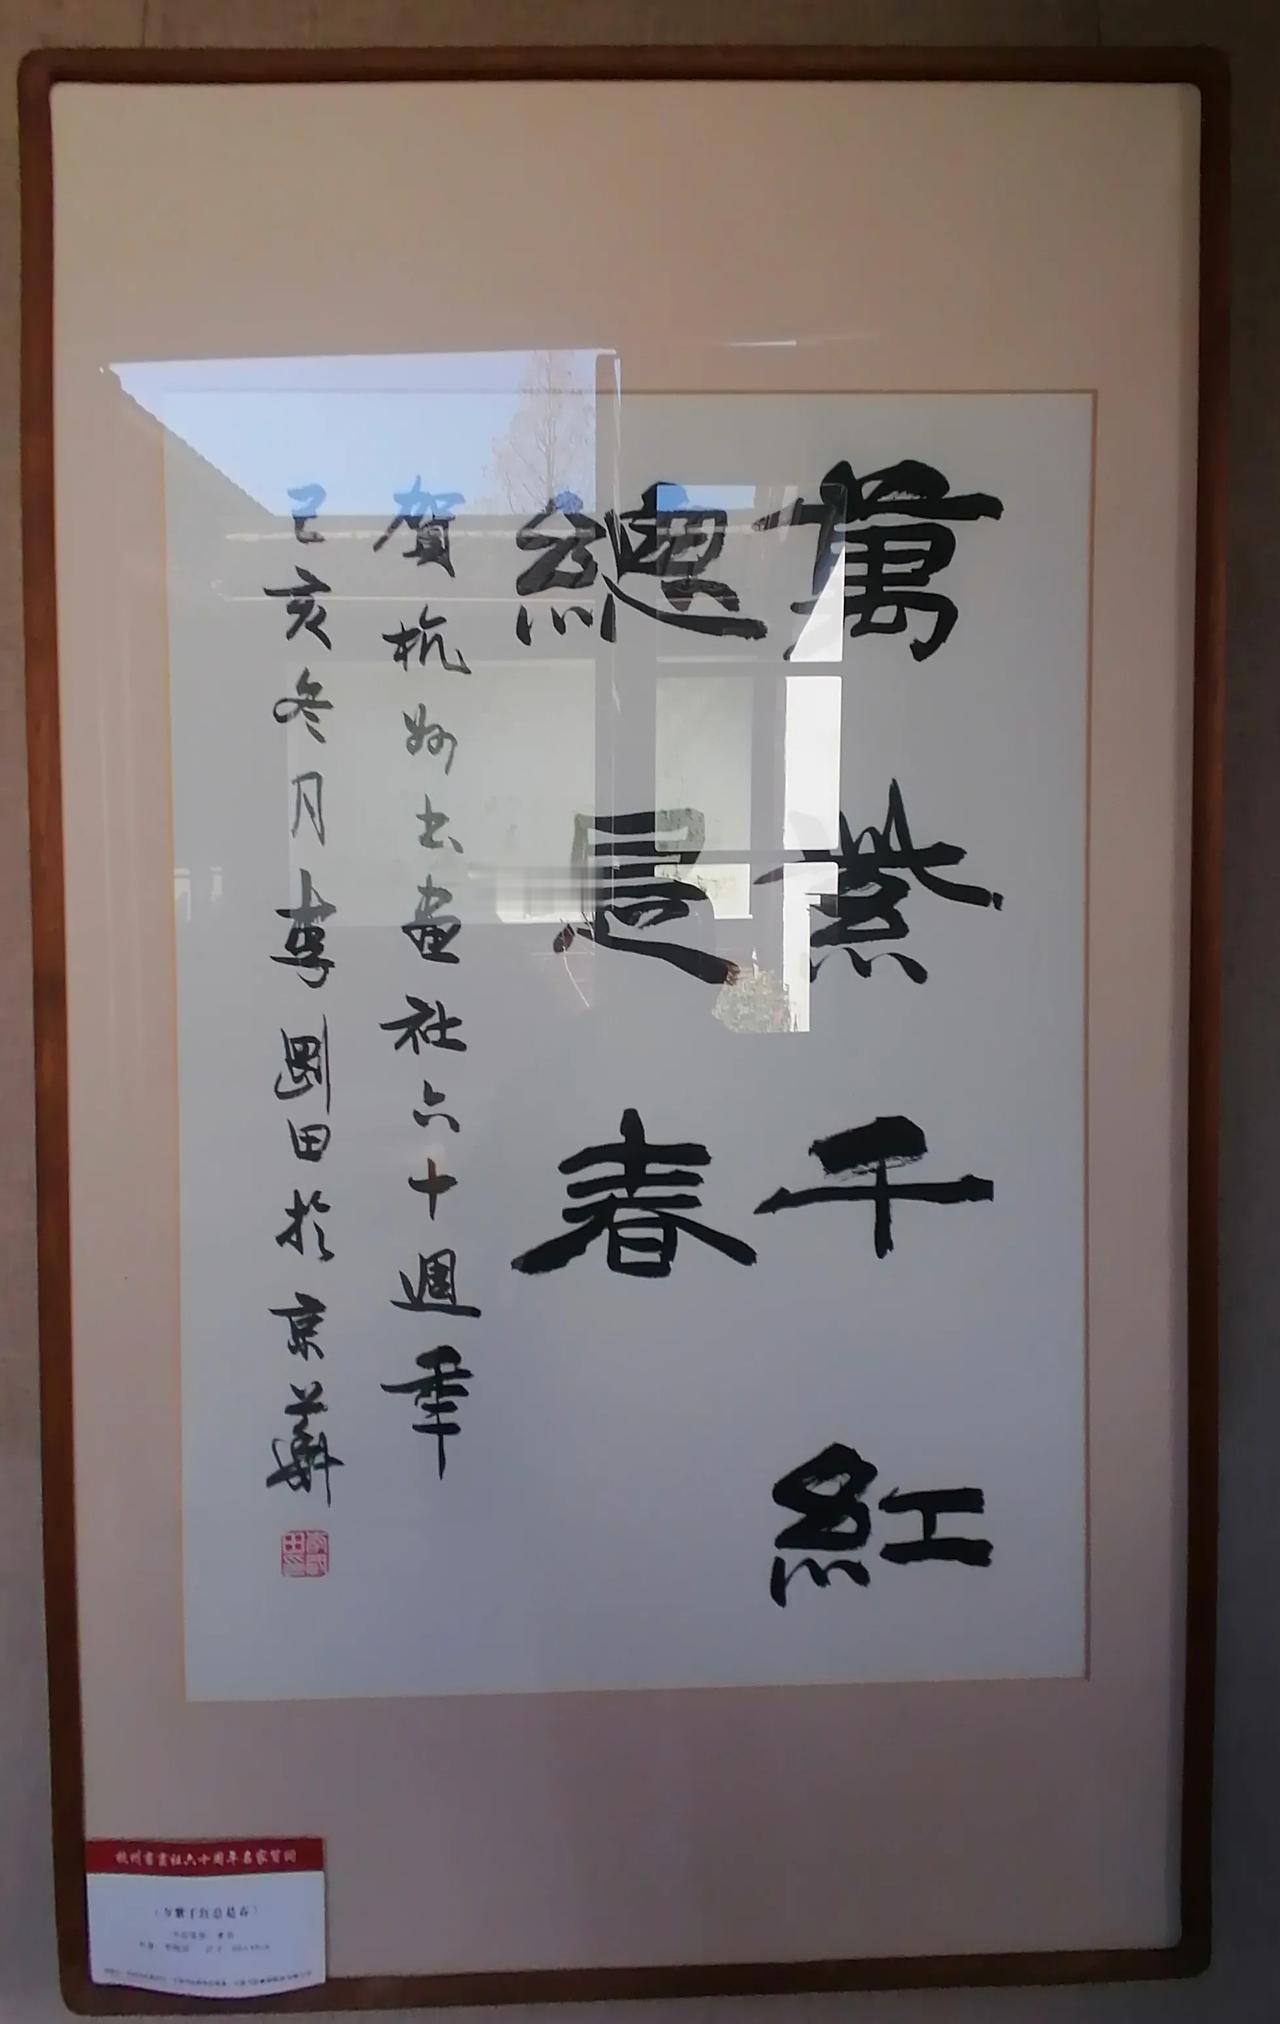 萬紫千紅
總是春
賀杭州书画社六十週年
己亥冬月李剛田於京華
杭州书画社六十周年名家贺词
《万紫千红总是春》